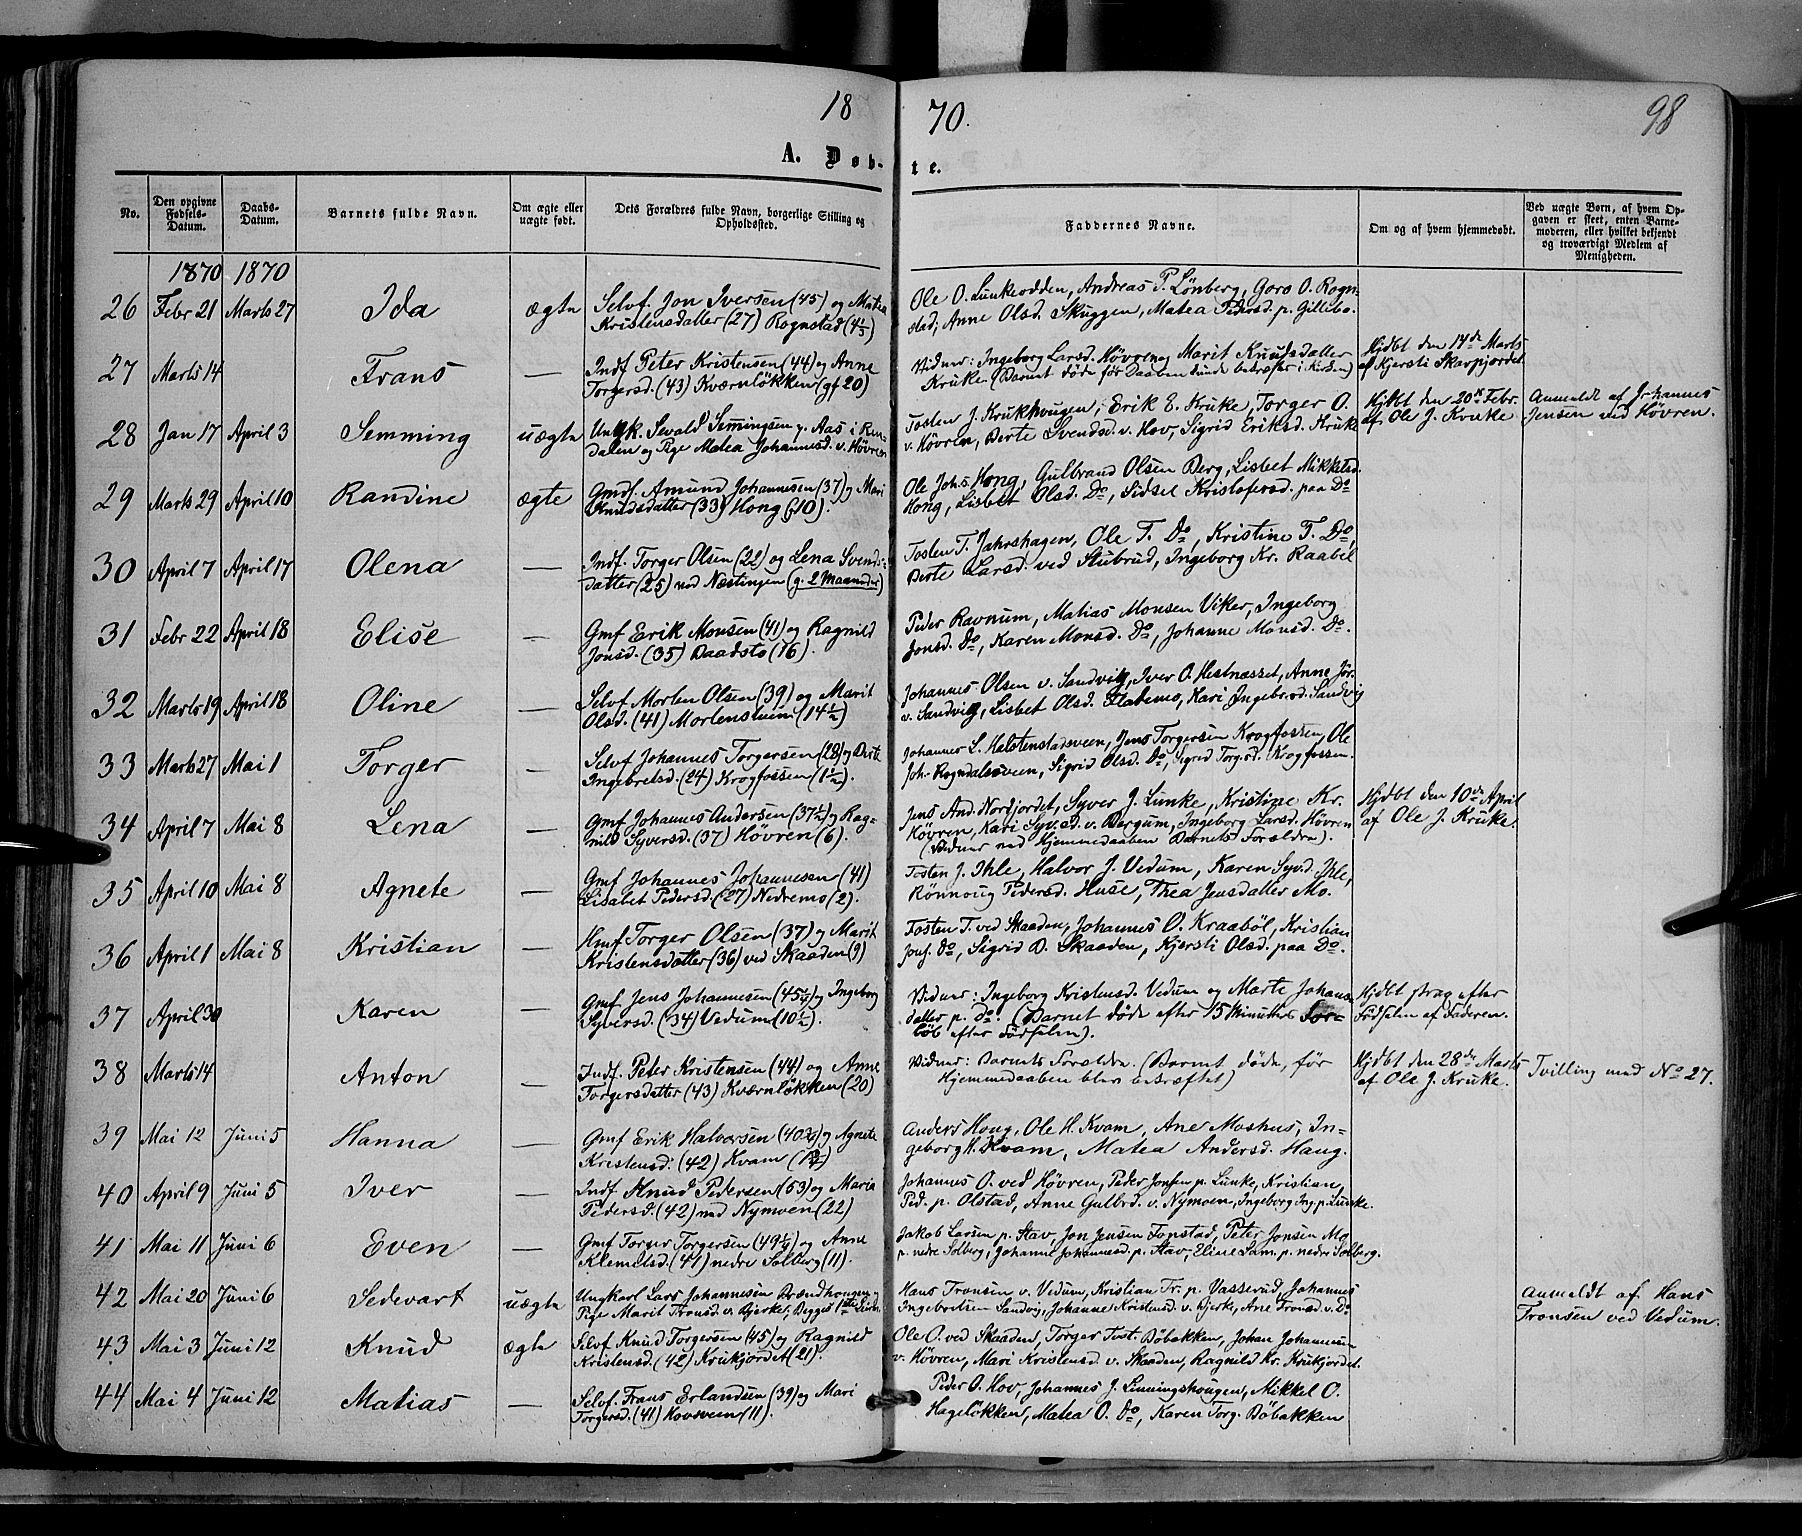 18 70. 98
A. Døb- te.
No.
Den opgivne Fødsels-Datum.
Daabs-Datum.
Barnets fulde Navn.
Om ægte eller uægte født.
Dets Forældres fulde Navn, borgerlige Stilling og Opholdssted.
Faddernes Navne.
Om og af hvem hjemmedøbt.
Ved uægte Børn, af hvem Opgaven er skeet, enten Barnemoderen, eller hvilket bekjendt og troværdigt Medlem af Menigheden.
1870 1870
26 Febr 21 Marts 27 Ida ægte Selvf. Jon Iversen (45) og Matea
Kristensdatter (27) Rognstad (4 1/3)
Ole O. Lunkeodden, Andreas P. Lönberg, Goro O. Rogn-
stad, Anne Olsd. Skuggen, Matea Pedersd. p. Gillebo.
27 Marts 14 Frans — Indf. Peter Kristensen (44) og Anne
Torgersd. (43) Kværnløkken (gf 20)
Vidner: Ingeborg Larsd. Hövren og Marit Knudsdatter
Kruke (Barnet døde før Daaben kunde bekræftes i Kirken)
Hjdbt den 14de Marts
af Kjersti Skarpjordet
28 Jan 17 April 3 Semming uægte Ungk. Sevald Semingsen p. Aas i Ren-
dalen og Pige Matea Johannesd. v. Hövren
Tosten J. Krukhougen, Erik E. Kruke, Torger O.
v. Hövren, Berte Svendsd. v. Hov, Sigrid Eriksd. Kruke
Hjdbt den 20de Febr.
af Ole J. Kruke
Anmeldt af Johannes
Jensen ved Hövren.
29 Marts 29 April 10 Randine ægte Gmdf. Amund Johannesen (37) og Mari
Knudsdatter (33) Hong (10).
Ole Johs. Hong, Gulbrand Olsen Berg, Lisbet Mikkelsd.
Hong, Lisbet Olsd. Do, Sidsel Kristofersd. paa Do
30 April 7 April 17 Olena — Indf. Torger Olsen (22) og Lena Svends-
datter (25) ved Næstingen (g. 2 Maaneder)
Tosten T. Jahrshagen, Ole T. Do, Kristine T. Do,
Berte Larsd. ved Stubrud, Ingeborg Kr. Raaböl
31 Febr 22 April 18 Elise — Gmf Erik Monsen (41) og Ragnild
Jonsd. (35) Baadstö (16).
Peder Ravnum, Matias Monsen Viker, Ingeborg
Jonsd. Do, Karen Monsd. Do, Johanne Monsd. Do.
32 Marts 19 April 18 Oline — Selvf Morten Olsen (39) og Marit
Olsd. (41) Mortensheim (14 1/2)
Johannes Olsen v. Sandvig, Iver O. Hestnæsset, Anne Jör.
v. Sandvig, Lisbet Olsd. Flatemo, Kari Ingebr.sd. Sandvig
33 Marts 27 Mai 1 Torger — Selvf Johannes Torgersen (28) og Berte
Ingebretsd. (24) Krogfossen (1 1/2).
Johannes L. Halstenstadsveen, Jens Torgersen Krogfossen, Ole
Joh. Rogndalssveen, Sigrid Olsd. Do, Sigrid Torg.sd. Krogfossen.
34 April 7 Mai 8 Lena — Gmf Johannes Andersen (37 1/2) og Rag-
nild Syversd. (37) Hövren (6).
Jens And. Nordjordet, Syver J. Lunke, Kristine Kr.
Hövren, Kari Syv.sd. v. Bergum, Ingeborg Larsd. Hövren
(Vidner ved Hjemmedaaben Barnets Forældre).
Hjdbt den 10de April
af Ole J. Kruke.
35 April 10 Mai 8 Agnete — Gmf Johannes Johannesen (41)
Lisabet Pedersd. (27) Nedremo (2).
Tosten J. Ihle, Halvor J. Vedum, Karen Syvd. Ihle,
Rönnoug Pedersd. Huse, Thea Jensdatter Mo.
36 April 1 Mai 8 Kristian — Hmf Torger Olsen (37) og Marit
Kristensdatter (36) ved Skaaden (9)
Tosten T. ved Skaaden, Johannes O. Kraaböl, Kristian
Do, Sigrid O. Skaaden, Kjersti Olsd. paa Do.
37 April 30 Karen — Gmf Jens Johannesen (45 1/2) og Ingeborg
Syversd. (34) Vedum (10 1/2).
Vidner: Ingeborg Kristensd. Vedum og Marte Johannes
datter p. do. (Barnet döde efter 15 Minutters For-
löb efter Födselen).
Hjdbt strax efter
Födselen af Faderen.
38 Marts 14 Anton — Indf. Peter Kristensen (44) og Anne
Torgersdatter (43) Kværnløkken (20)
Vidner: Barnets Forældre. (Barnet döde, för
Hjemmedaaben blev bekræftet)
Hjdbt den 28de Marts
af Ole J. Kruke.
Tvilling med No 27.
39 Mai 12 Juni 5 Hanna — Gmf Erik Halvorsen (40 3/4) og Agnete
Kristensd. (42) Kvam
Anders Hong, Ole H. Kvam, Ane Moshus, In-
geborg H. Kvam, Matea Andersd. Haug.
40 April 9 Juni 5 Iver — Indf. Knud Pedersen (53) og Maria
Pedersd. (42) ved Nymoen (22)
Johannes O. ved Hövren, Peder Jonsen p. Lunke, Kristian
Ped. p. Olstad, Anne Gulbrd. v. Nymoen, Ingeborg Ing. p. Lunke.
41 Mai 11 Juni 6 Even — Gmf Torger Torgersen (49 1/2) og Anne
Klemetsd. (41) nedre Solberg (11).
Jakob Larsen p. Stav, Jon Jensen Fonstad, Peter Jonsen Mo
p. nedre Solberg, Johanne Johannesd. p. Stav, Eline Sam. p. nedre Solberg.
42 Mai 20 Juni 6 Sedevart uægte Ungkarl Lars Johannesen Brændhougen og
Pige Marit Tronsd. v. Bjerke, Begges 1ste Leierm.
Hans Tronsen v. Vedum, Kristian Tr. p. Vasserud, Johannes
Ingebretsen Sandvig, Johanne Kristensd. v. Bjerke, Ane Tronsd. v. Do
Anmeldt af Hans
Tronsen ved Vedum.
43 Mai 3 Juni 12 Knud ægte Selvf. Knud Torgersen (45) og Ragnild
Kristensd. (42) Krukjordet (21).
Ole O. ved Skaaden, Torger Tost. Böbakken, Johan Johannesen
v. Hövren, Mari Kristensd. v. Skaaden, Ragnild Kr. Krukjordet.
44 Mai 4 Juni 12 Matias — Selvf. Frans Erlandsen (39) og Mari
Torgersd. (41) Hovsveen (11).
Peder O. Hov, Johannes J. Linningshougen, Mikkel O.
Hageløkken, Matea O. Do, Karen Torg. Böbakken